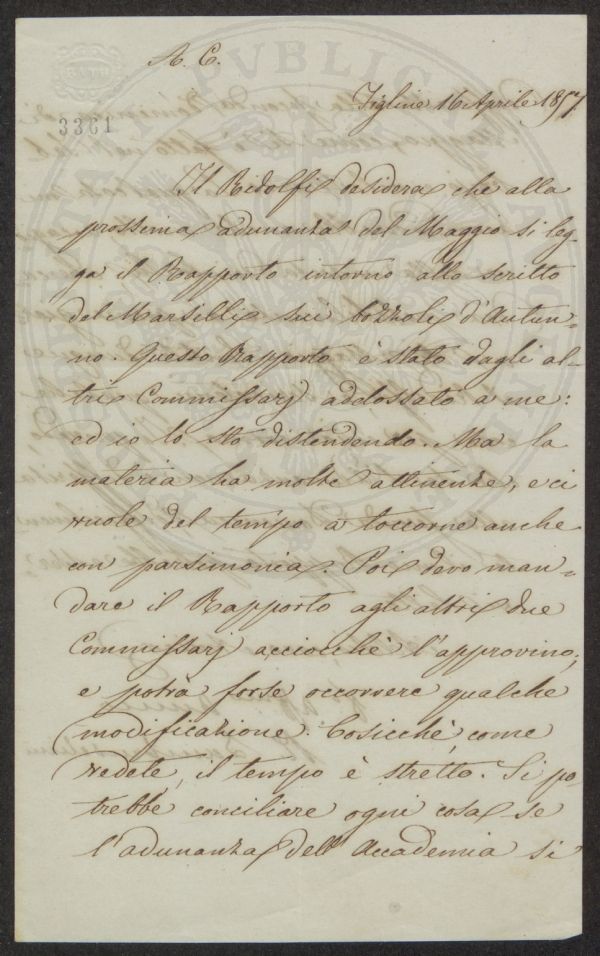 A. C.
Figline 16 Aprile 1857
3361
BATH
Il Ridolfi desidera che alla
prossima adunanza del Maggio si leg-
ga il Rapporto intorno allo scritto
del Marsilli sui bozzoli d'Autun=
no. Questo Rapporto è stato dagli al-
tri Commissarj addossato a me:
ed io lo sto distendendo. Ma la
materia ha molte attinenze, e ci
vuole del tempo a toccarne anche
con parsimonia. Poi devo man=
dare il Rapporto agli altri due
Commissarj acciocchè l'approvino;
e potrà forse occorrere qualche
modificazione. Cosicchè, come
vedete, il tempo è stretto. Si po-
trebbe conciliare ogni cosa se
l'adunanza dell'Accademia si